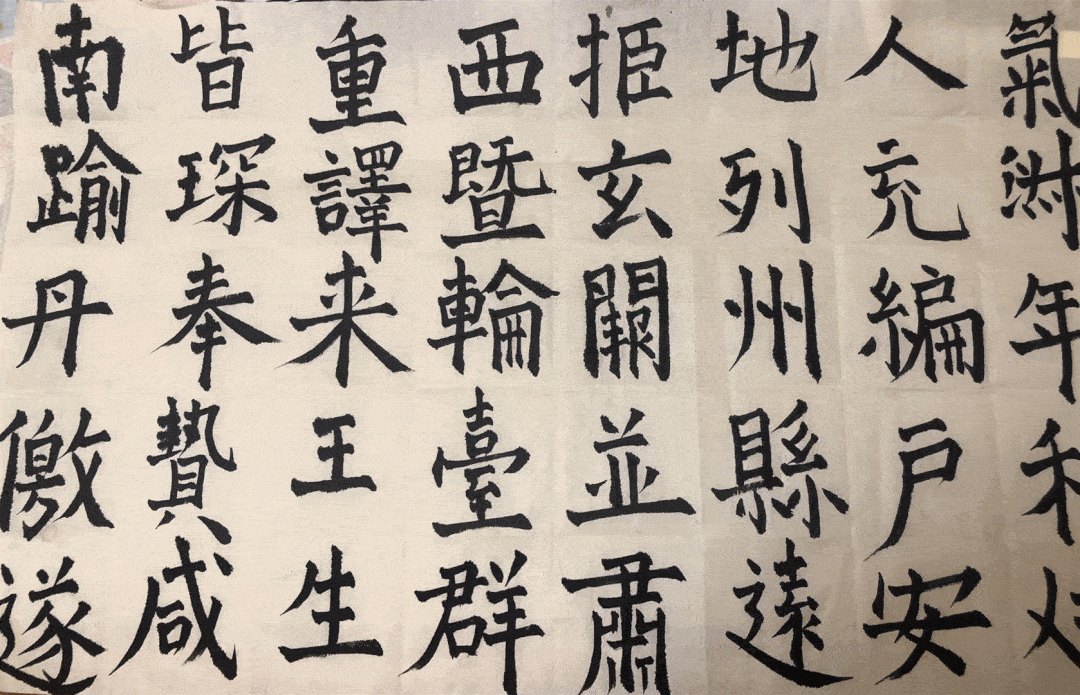 氣淑年
人充編戶安
地列州縣遠
拒玄闕並肅
西暨輪臺群
重譯来王生
皆琛奉贄咸
南踰丹徼遂